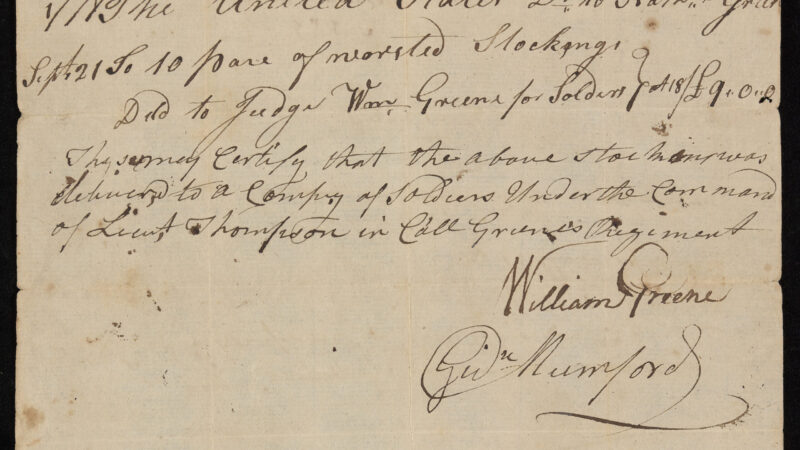 The United States Dr to Nathnl Green
Sept 21 To 10 pare of worsted Stockings
Dld to Judge Wm Greene for Solders } at 18/ £9..0..0
These may Certify that the above Stockens was
deliverd to a Compy of Soldiers Under the Command
of Lieut Thompson in Coll Greene's Regiment
William Greene
Gidn Mumford